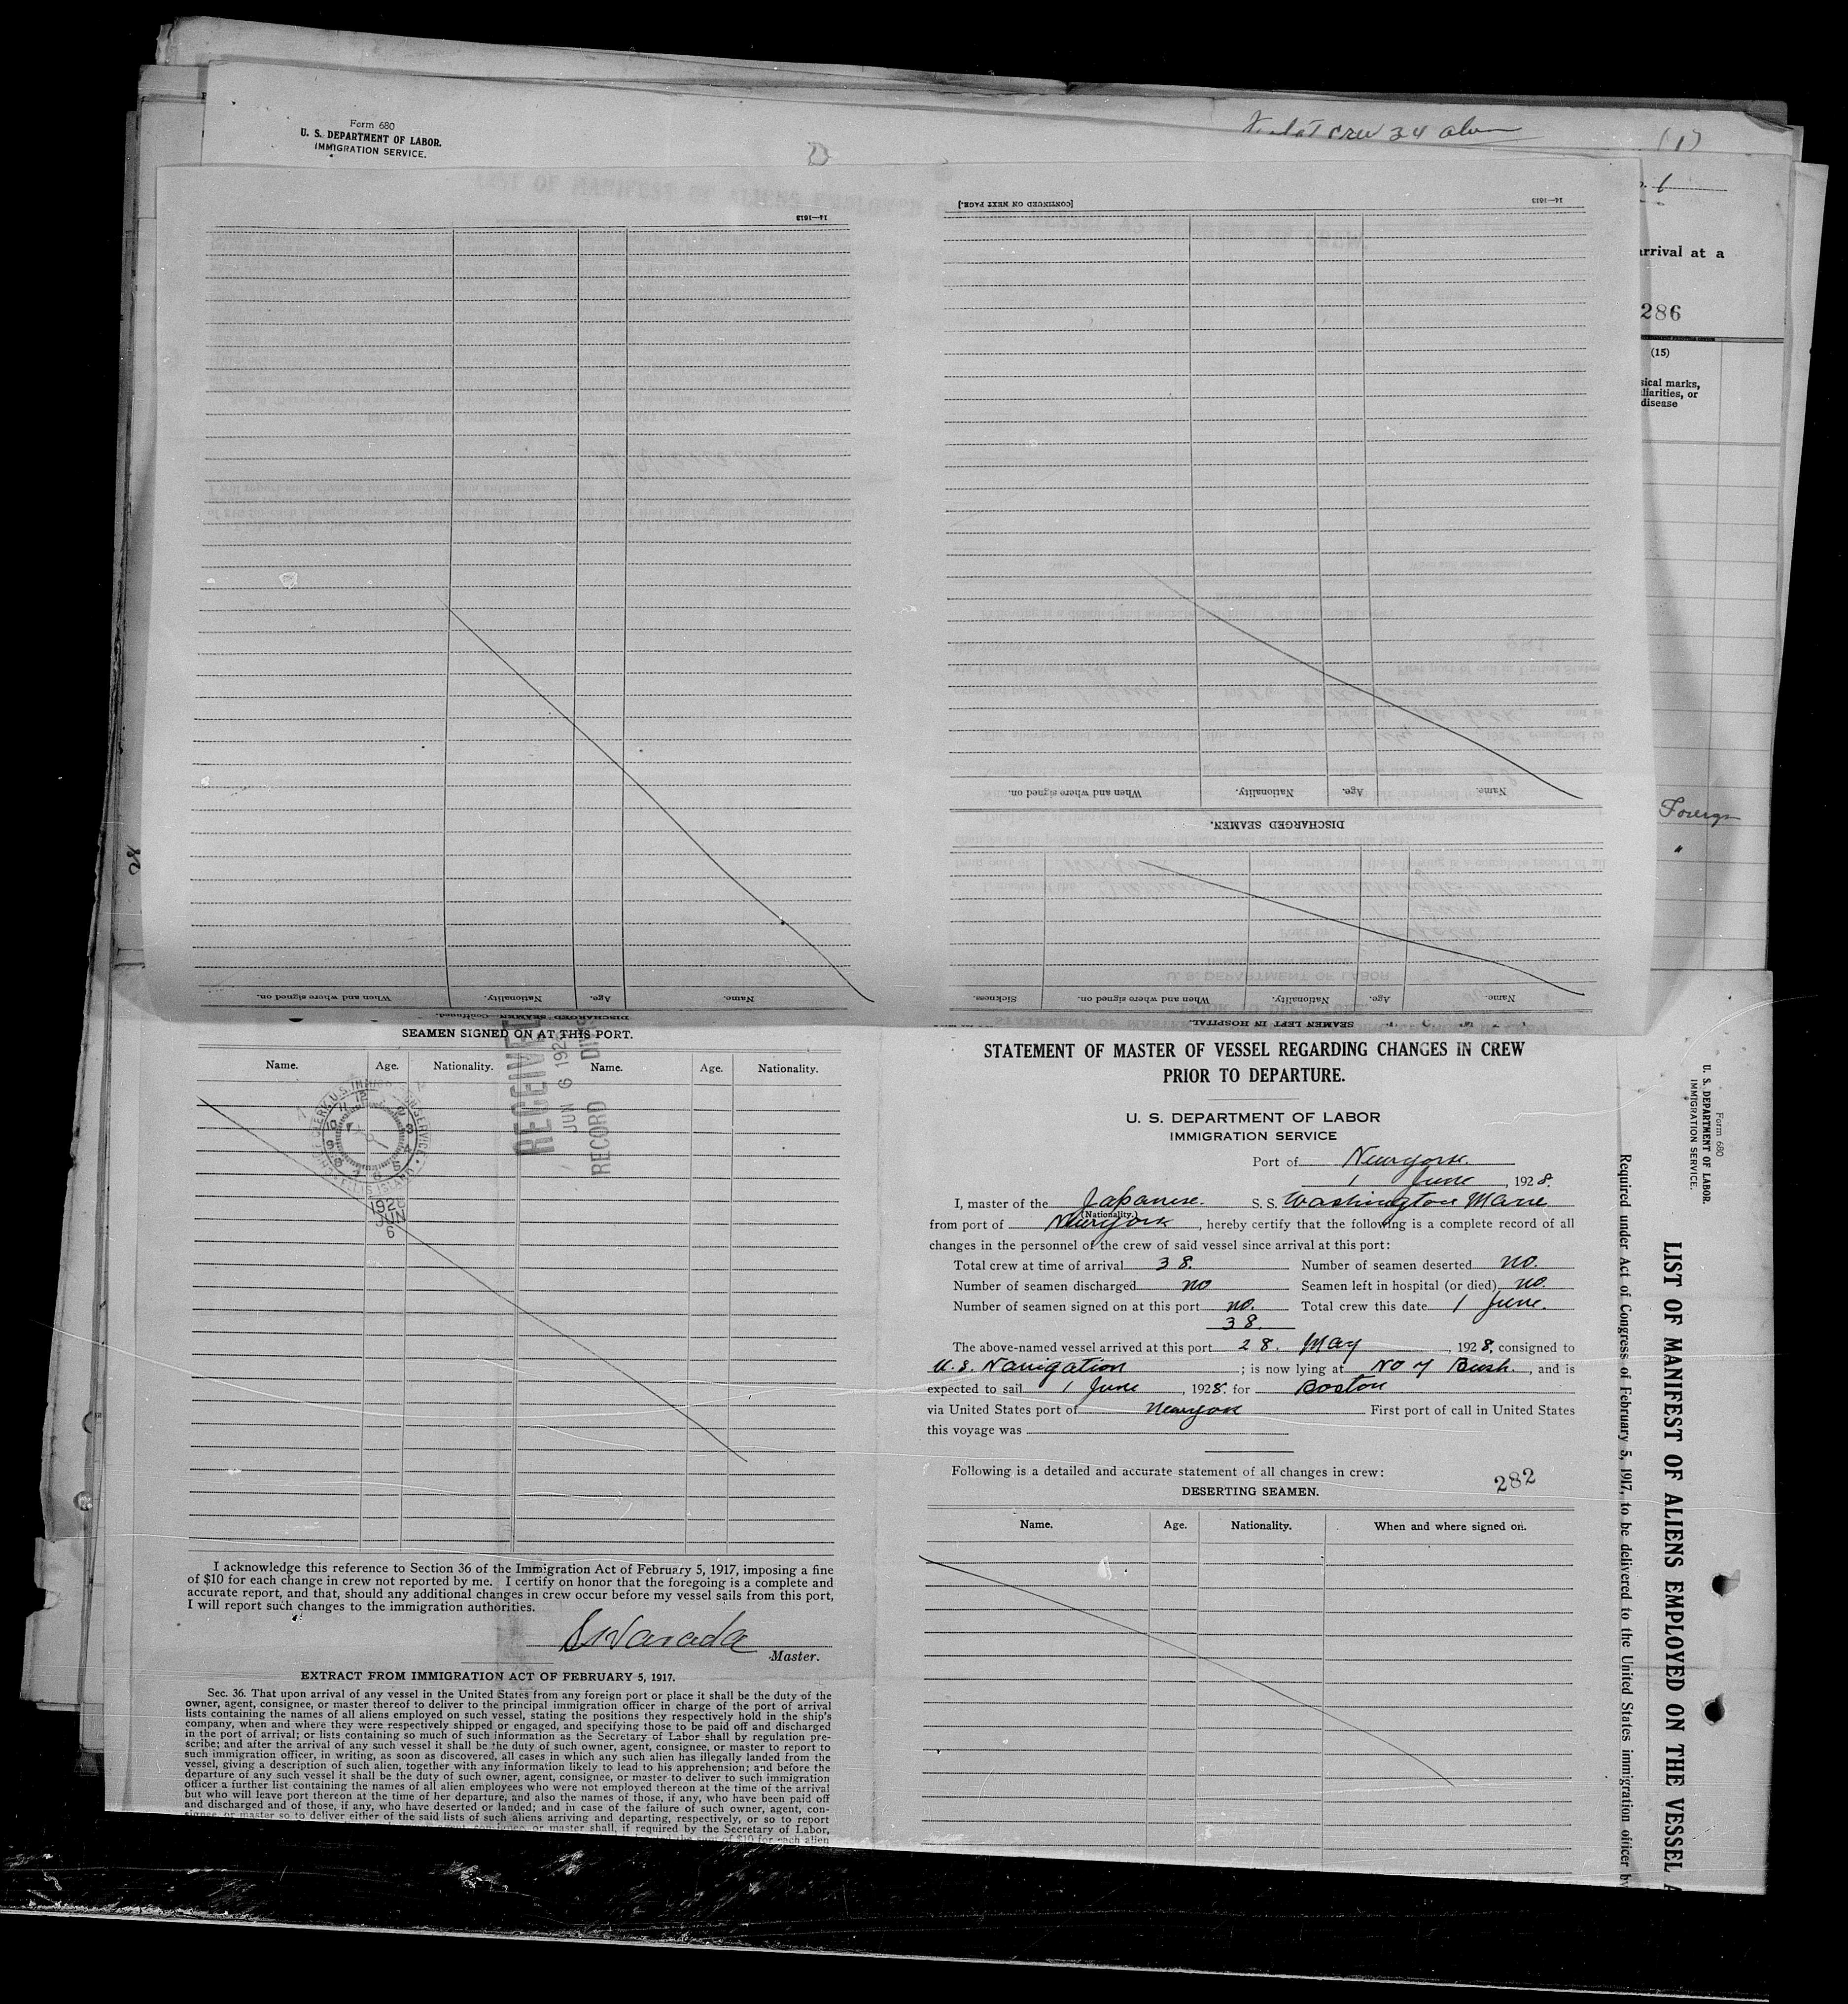 Form 680
U. S. DEPARTMENT OF LABOR.
IMMIGRATION SERVICE.
crew 34
(1)
1
arrival at a
286
(15)
sical marks,
liarities, or
disease
Foreign
"
14—1613
[CONTINUED ON NEXT PAGE.]
14—1613
Name. Age. Nationality. When and where signed on.
DISCHARGED SEAMEN.
Name. Age. Nationality. When and where signed on. Sickness.
SEAMEN LEFT IN HOSPITAL.
Name. Age. Nationality. When and where signed on.
DISCHARGED SEAMEN—Continued.
SEAMEN SIGNED ON AT THIS PORT.
Name. Age. Nationality. Name. Age. Nationality.
RECEIVED
JUN 6 192
RECORD DIV
1928
JUN
6
I acknowledge this reference to Section 36 of the Immigration Act of February 5, 1917, imposing a fine
of $10 for each change in crew not reported by me. I certify on honor that the foregoing is a complete and
accurate report, and that, should any additional changes in crew occur before my vessel sails from this port,
I will report such changes to the immigration authorities.
Master.
EXTRACT FROM IMMIGRATION ACT OF FEBRUARY 5, 1917.
Sec. 36. That upon arrival of any vessel in the United States from any foreign port or place it shall be the duty of the
owner, agent, consignee, or master thereof to deliver to the principal immigration officer in charge of the port of arrival
lists containing the names of all aliens employed on such vessel, stating the positions they respectively hold in the ship's
company, when and where they were respectively shipped or engaged, and specifying those to be paid off and discharged
in the port of arrival; or lists containing so much of such information as the Secretary of Labor shall by regulation pre-
scribe; and after the arrival of any such vessel it shall be the duty of such owner, agent, consignee, or master to report to
such immigration officer, in writing, as soon as discovered, all cases in which any such alien has illegally landed from the
vessel, giving a description of such alien, together with any information likely to lead to his apprehension; and before the
departure of any such vessel it shall be the duty of such owner, agent, consignee, or master to deliver to such immigration
officer a further list containing the names of all alien employees who were not employed thereon at the time of the arrival
but who will leave port thereon at the time of her departure, and also the names of those, if any, who have been paid off
and discharged and of those, if any, who have deserted or landed; and in case of the failure of such owner, agent, con-
signee, or master so to deliver either of the said lists of such aliens arriving and departing, respectively, or so to report
consignee, or master shall, if required by the Secretary of Labor,
of $10 for each alien
STATEMENT OF MASTER OF VESSEL REGARDING CHANGES IN CREW
PRIOR TO DEPARTURE.
U. S. DEPARTMENT OF LABOR
IMMIGRATION SERVICE
Port of Newyork.
1 June, 1928.
I, master of the Japanese. S. S. Washington Mare
(Nationality.)
from port of Newyork, hereby certify that the following is a complete record of all
changes in the personnel of the crew of said vessel since arrival at this port:
Total crew at time of arrival 38. Number of seamen deserted no.
Number of seamen discharged no Seamen left in hospital (or died) no.
Number of seamen signed on at this port no. Total crew this date 1 June.
38.
The above-named vessel arrived at this port 28. May, 1928, consigned to
U.S. Navigation; is now lying at No 7 Bush., and is
expected to sail 1 June, 1928. for Boston
via United States port of Newyork First port of call in United States
this voyage was
Following is a detailed and accurate statement of all changes in crew:
282
DESERTING SEAMEN.
Name. Age. Nationality. When and where signed on.
Form 680
U. S. DEPARTMENT OF LABOR.
IMMIGRATION SERVICE.
LIST OF MANIFEST OF ALIENS EMPLOYED ON THE VESSEL A
Required under Act of Congress of February 5, 1917, to be delivered to the United States immigration officer by